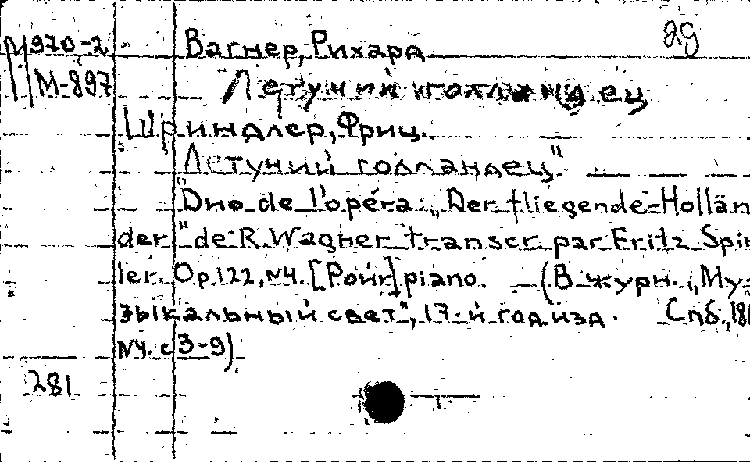 29
М970-2 Вагнер, Рихард
М-897 Летучий голландец
Шпиндлер, Фриц.
"Летучий голландец"
"Duo de l'opéra: „Der fliegende-Hollän
der" de R. Wagner transcr par Fritz Spin
ler Op. 122, N4. piano. (В журн. „Му-
зыкальный свет", 17-й год изд. Спб.,
N4. с 3-9)
281